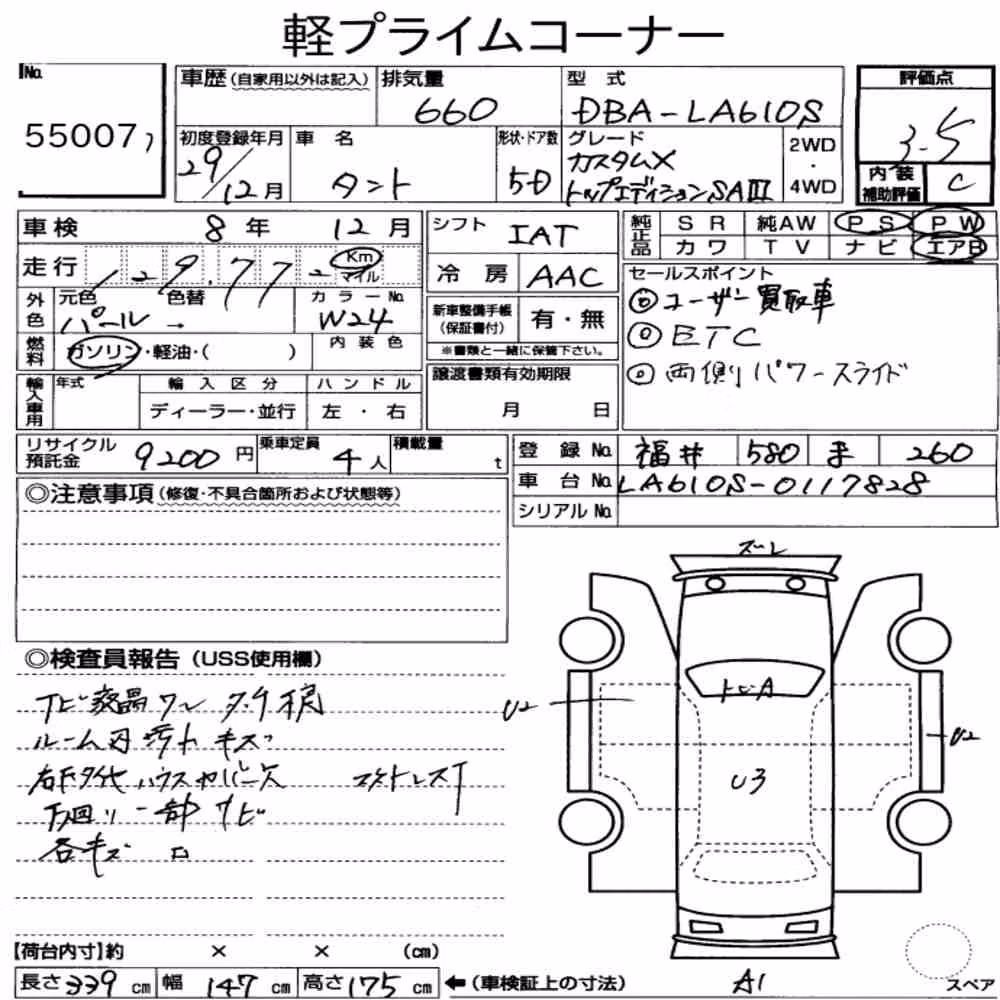 軽プライムコーナー
No.
55007
車歴(自家用以外は記入)
排気量
660
型式
DBA-LA610S
評価点
3.5
内装
補助評価
C
初度登録年月
29/12月
車名
タント
形状・ドア数
5D
グレード
カスタムX
トップエディションSAⅢ
2WD
・
4WD
車検 8年 12月
シフト IAT
純正品
SR 純AW PS PW
カワ TV ナビ エアB
走行 129,772 Km
マイル
冷房 AAC
外色
元色 色替
パール →
カラーNo.
W24
新車整備手帳
(保証書付)
有・無
※書類と一緒に保管下さい。
セールスポイント
◎ユーザー買取車
◎ETC
◎両側パワースライド
燃料
ガソリン・軽油・( )
内装色
輸入車用
年式
輸入区分
ディーラー・並行
ハンドル
左・右
譲渡書類有効期限
月 日
リサイクル
預託金
9200円
乗車定員
4人
積載量
t
登録No. 福井 580 ま 260
車台No. LA610S-0117828
シリアルNo.
◎注意事項(修復・不具合箇所および状態等)
◎検査員報告(USS使用欄)
ルーム内汚れ キズ
下回り一部サビ
各キズ
ズレ
トビA
U2
U3
U2
A1
スペア
【荷台内寸】約 × × (cm)
長さ339cm 幅147cm 高さ175cm ←(車検証上の寸法)